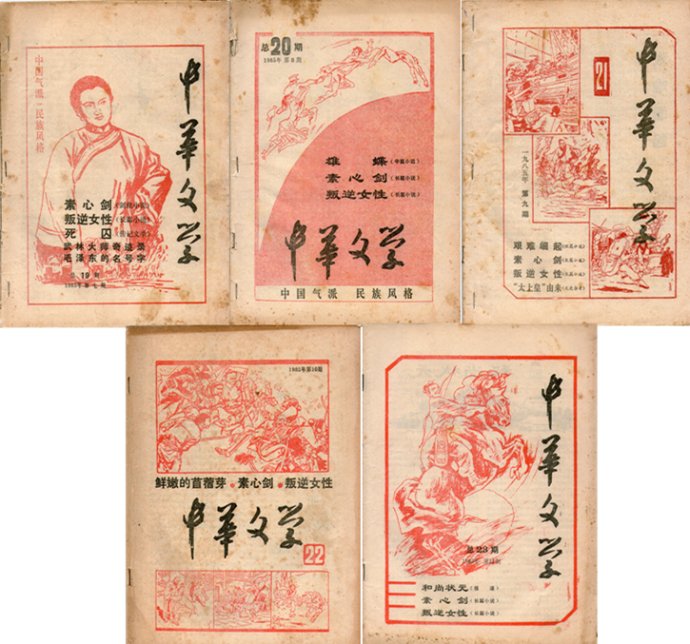 中国气派 民族风格
中華文学
素心剑
叛逆女性(长篇小说)
死囚
武林大师奇迹录
毛泽东的名号字
总19期
1985年第七期
总20期
1985年第8期
雄蝶(中篇小说)
素心剑(长篇小说)
叛逆女性(长篇小说)
中華文学
中国气派 民族风格
21
中華文学
一九八五年 第九期
艰难崛起
素心剑
叛逆女性
“太上皇”由来
1985年第10期
鲜嫩的苜蓿芽·素心剑·叛逆女性
中華文学
22
中華文学
总23期
和尚状元
素心剑(长篇小说)
叛逆女性(长篇小说)